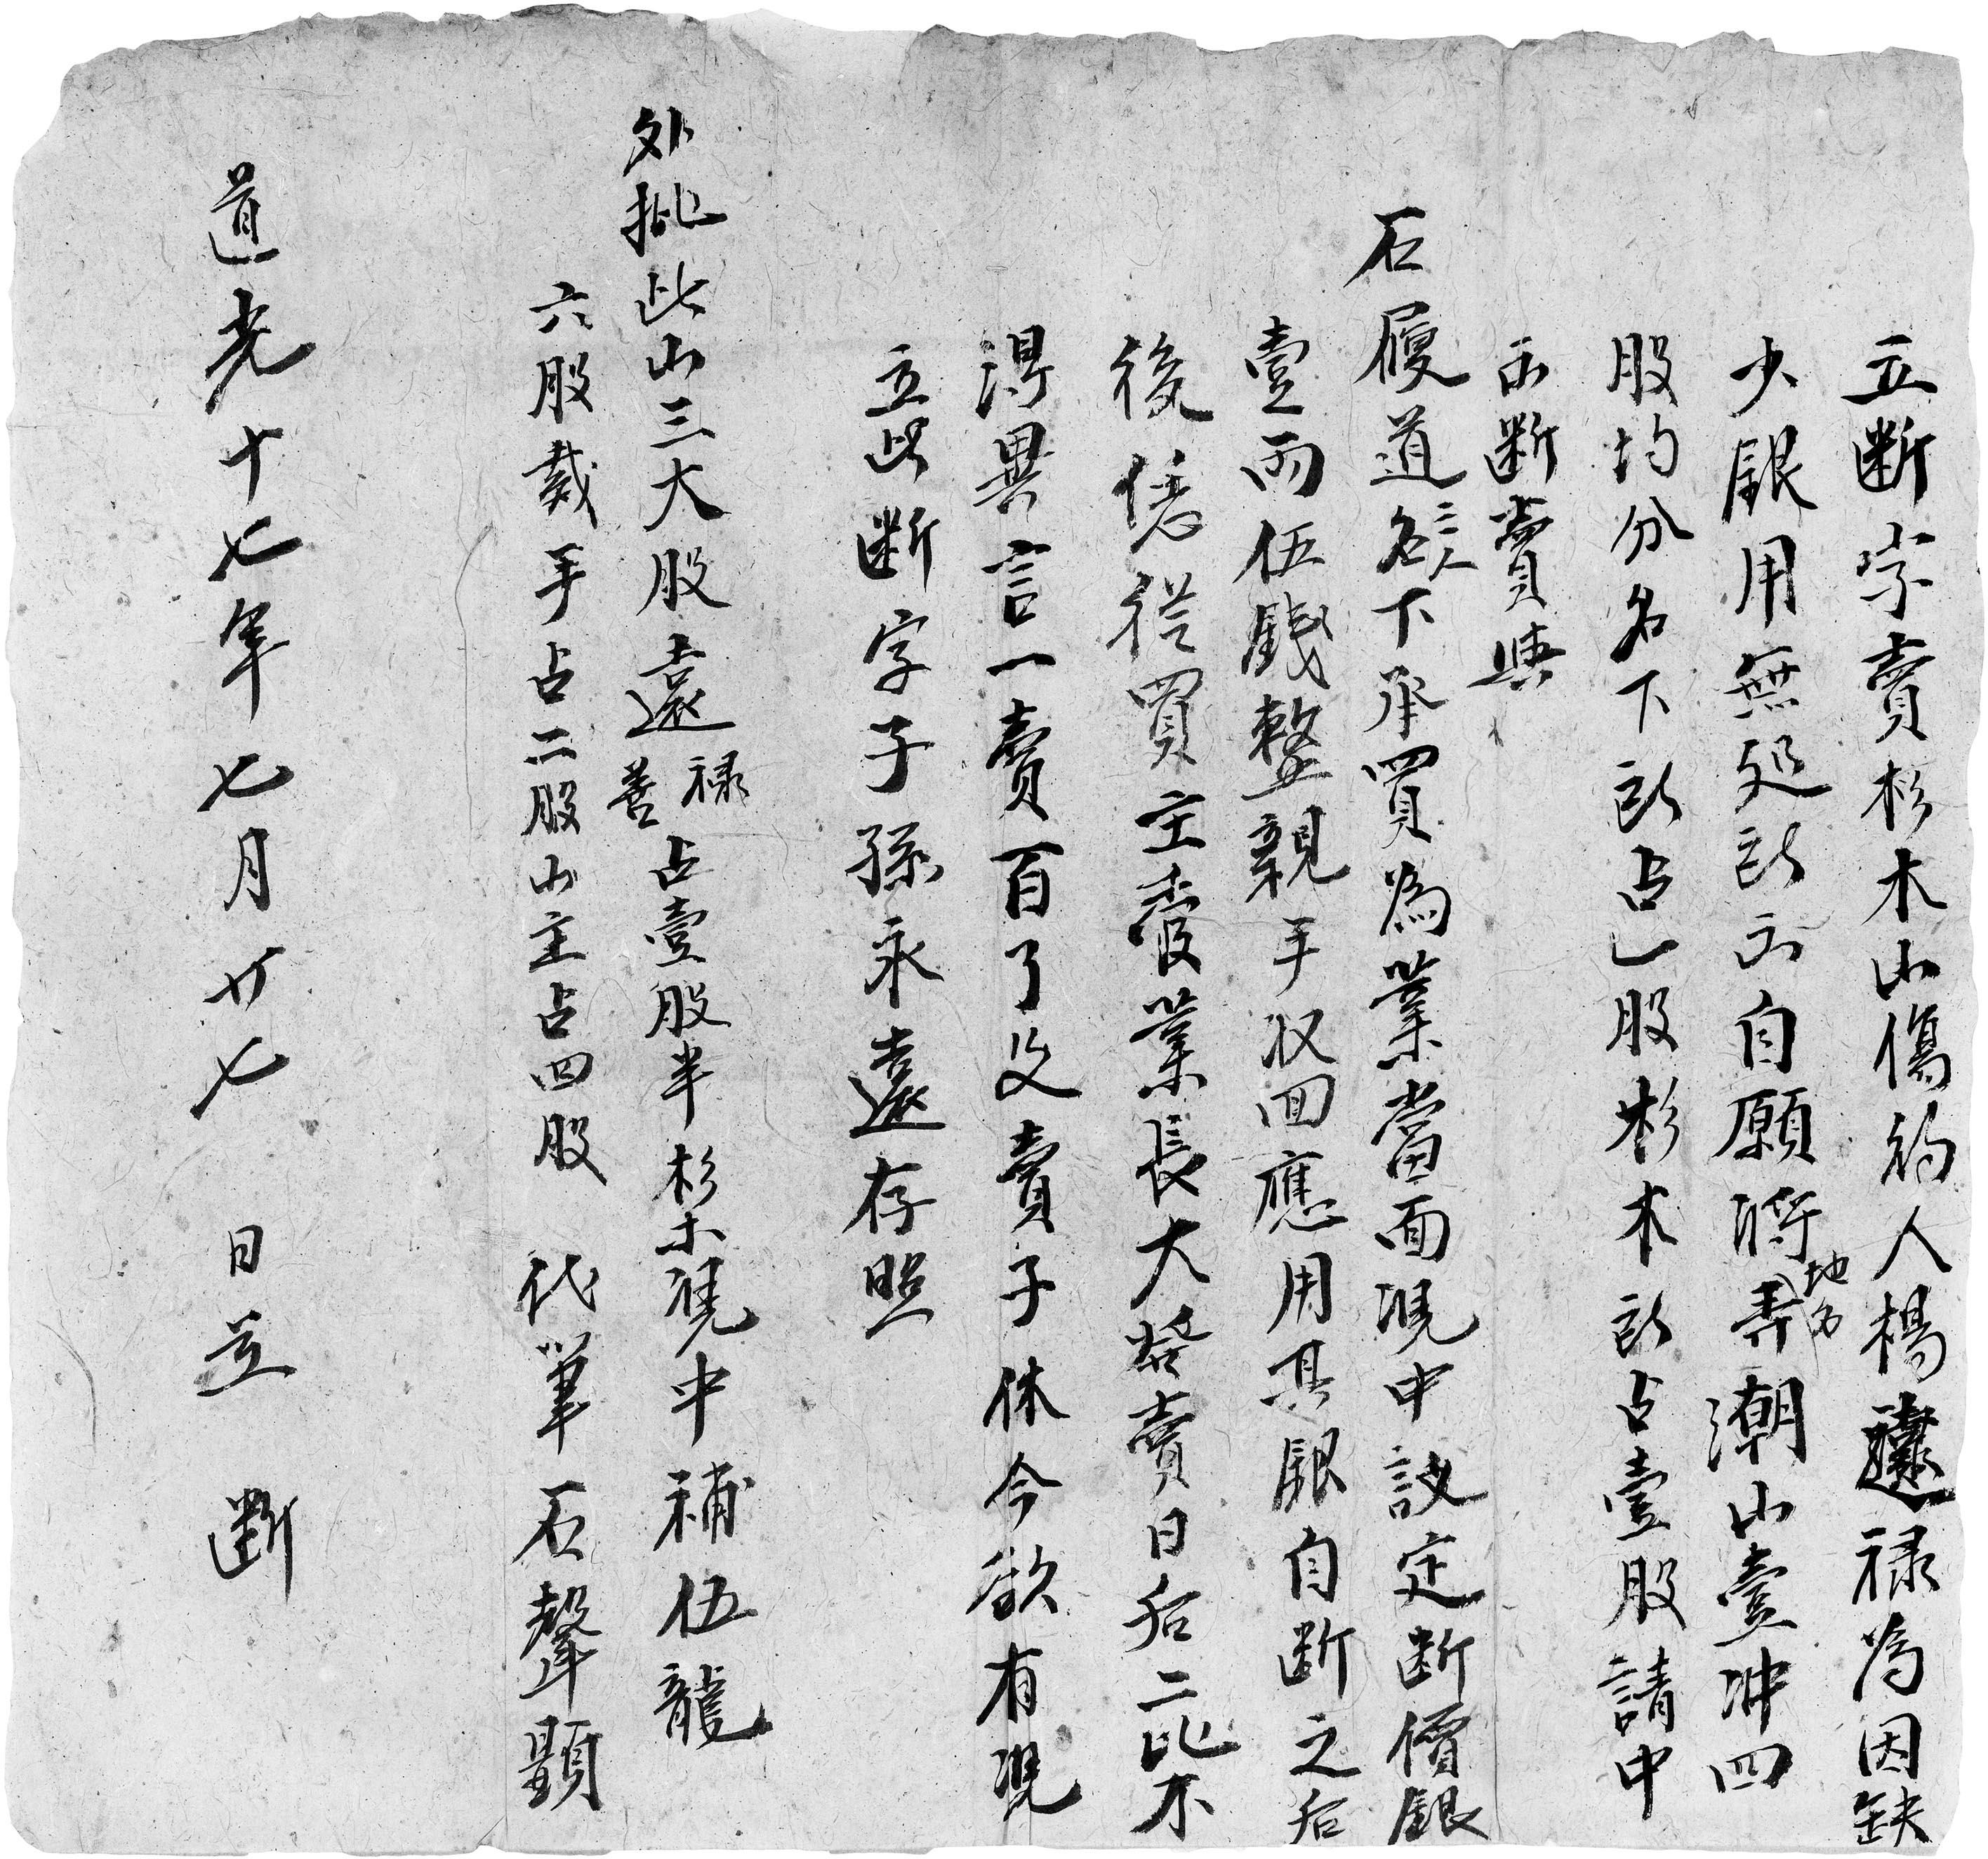 立断字賣杉木山傷約人楊遠禄為因缺
少銀用無処出自願將地名弄潮山壹冲四
股均分名下所占一股杉木所占壹股請中
出断賣與
石履道三人名下承買為業當面凴中議定断價銀
壹兩伍錢整親手収回應用其銀自断之后
後憑從買主管業長大發賣日后二比不
淂異言一賣百了父賣子休今欲有凴
立此断字子孫永遠存照
外批此山三大股遠禄善占壹股半杉木凴中補伍龍
六股栽手占二股山主占四股 代筆 石聲顯
道光十七年七月廿七日立 断